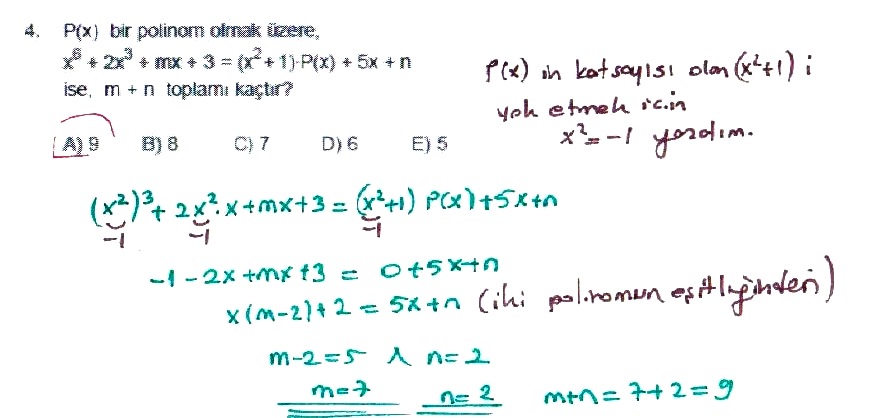 4. P(x) bir polinom olmak üzere,
x⁶ + 2x³ + mx + 3 = (x² + 1)·P(x) + 5x + n
ise, m + n toplamı kaçtır?
A) 9 B) 8 C) 7 D) 6 E) 5
P(x) in katsayısı olan (x²+1) i
yok etmek için
x² = -1 yazdım.
(x²)³ + 2x²·x + mx + 3 = (x²+1) P(x) + 5x + n
-1 -1 -1
-1 - 2x + mx + 3 = 0 + 5x + n
x(m-2) + 2 = 5x + n (iki polinomun eşitliğinden)
m-2=5 ∧ n=2
m=7 n=2 m+n=7+2=9